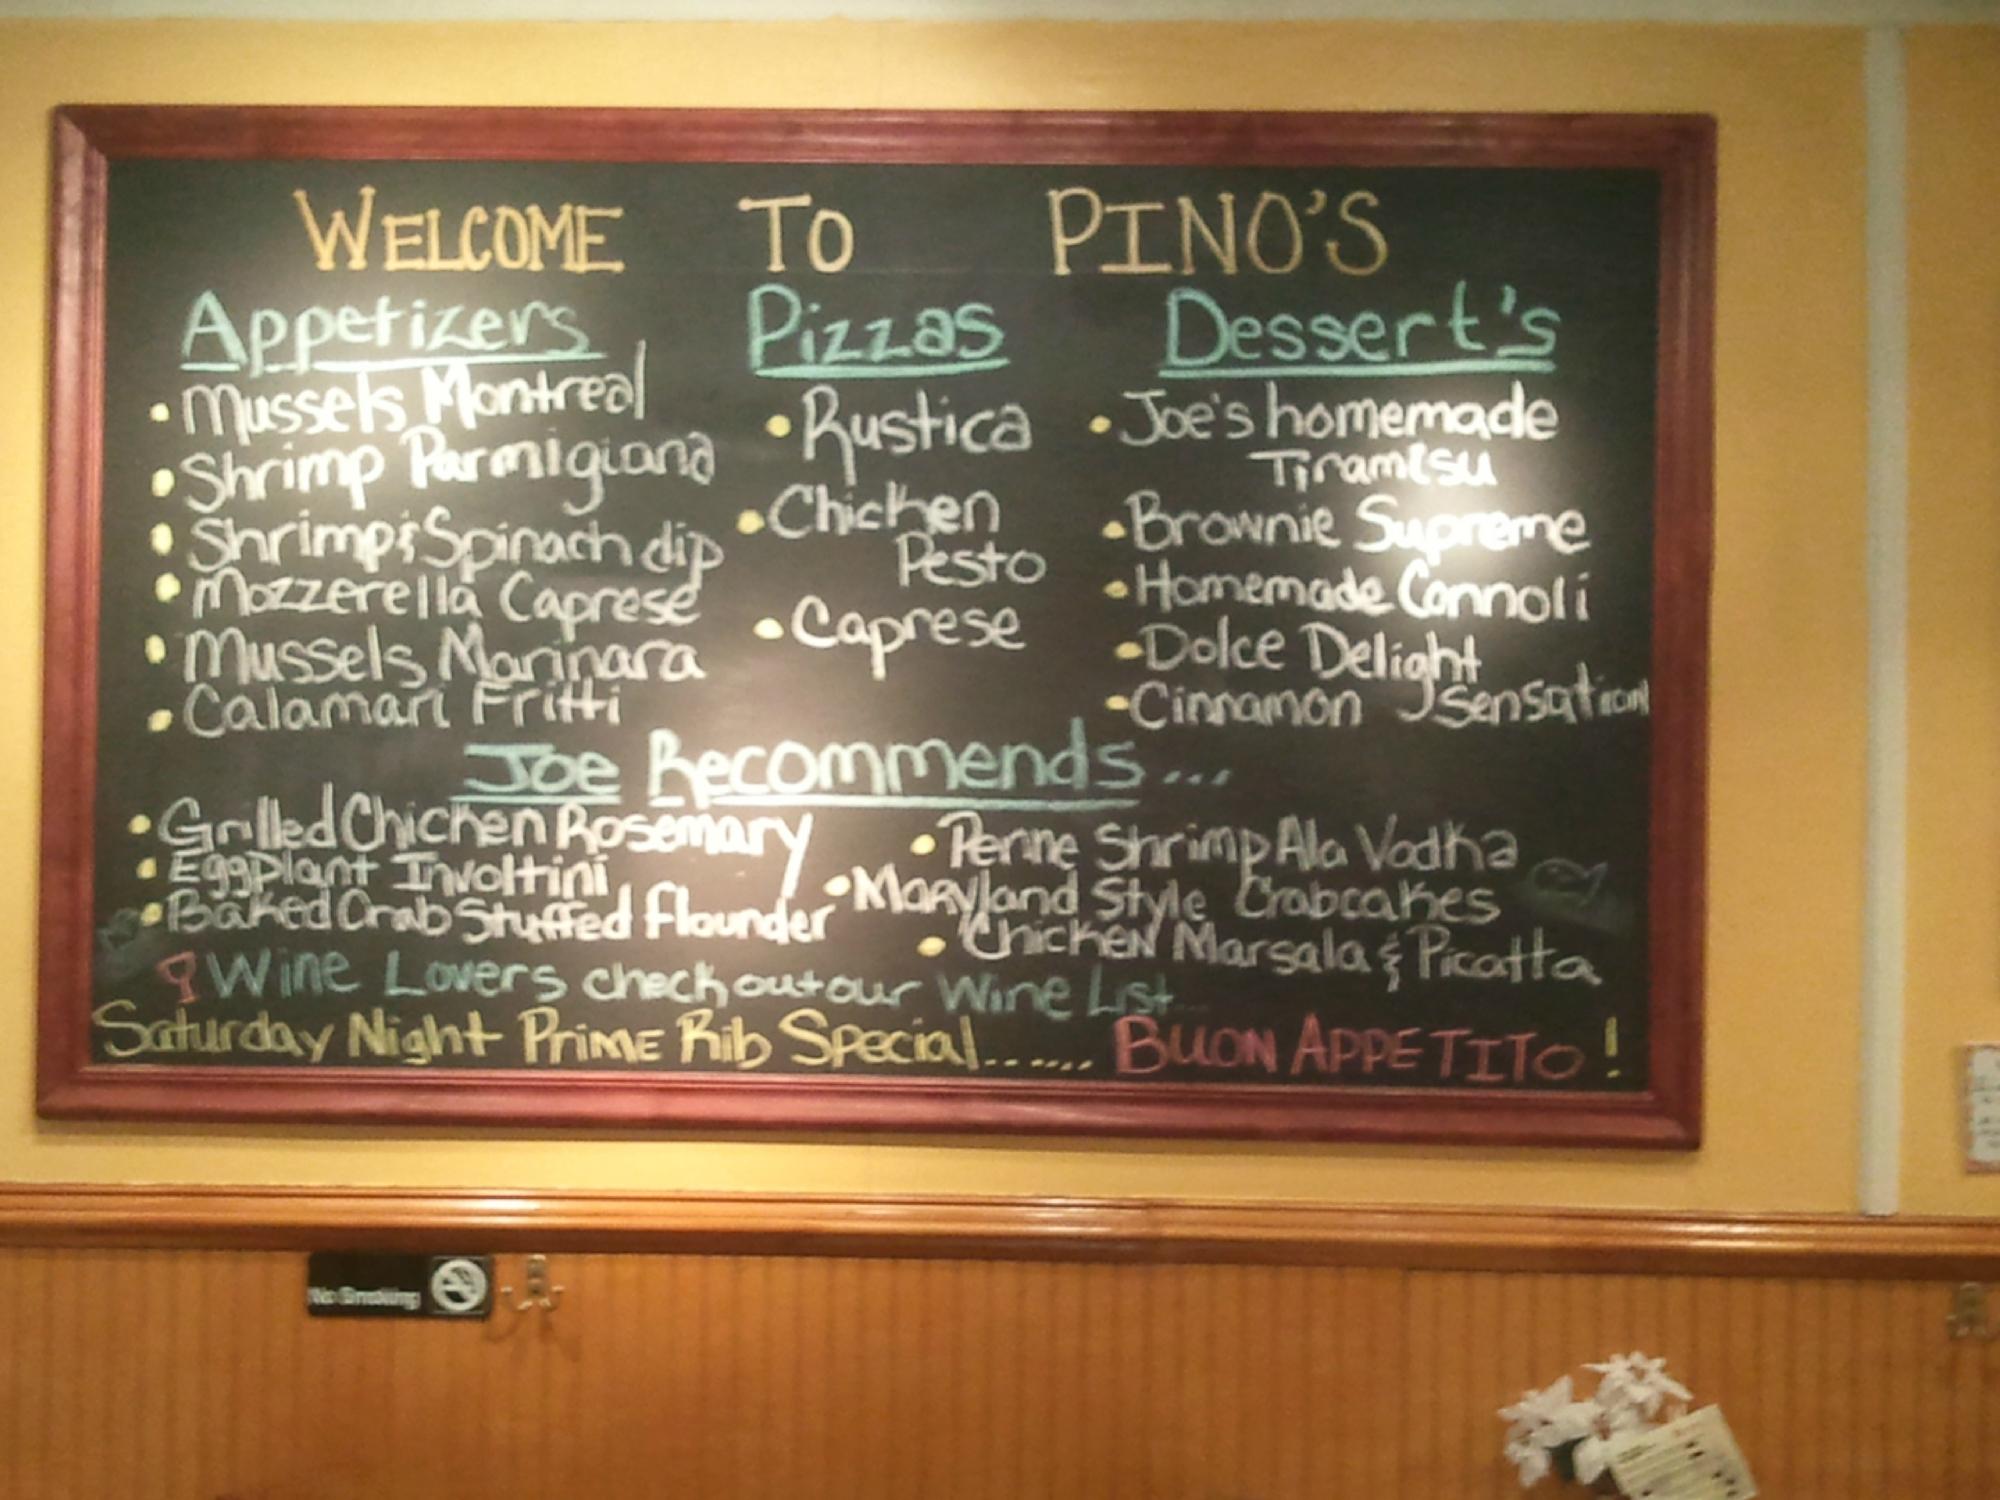 WELCOME TO PINO'S
Appetizers
• Mussels Montreal
• Shrimp Parmigiana
• Shrimp & Spinach dip
• Mozzerella Caprese
• Mussels Marinara
• Calamari Fritti
Pizzas
• Rustica
• Chicken
Pesto
• Caprese
Dessert's
• Joe's homemade
Tiramisu
• Brownie Supreme
• Homemade Cannoli
• Dolce Delight
• Cinnamon Sensation
Joe Recommends...
• Grilled Chicken Rosemary
• EggPlant Involtini
• Baked Crab Stuffed flounder
• Penne Shrimp Ala Vodka
• Maryland Style Crabcakes
• Chicken Marsala & Picatta
Wine Lovers check out our Wine List...
Saturday Night Prime Rib Special....... BUON APPETITO!
No Smoking